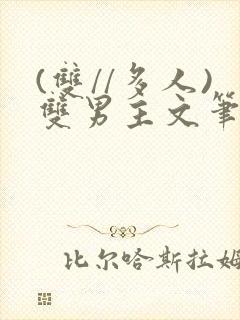 (雙//多人)
雙男主文筆
比尔哈斯拉姆